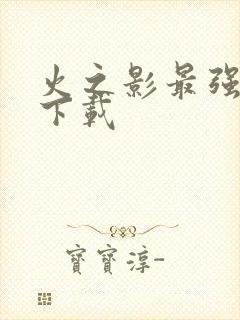 火之影最强
下載
寶寶淳-